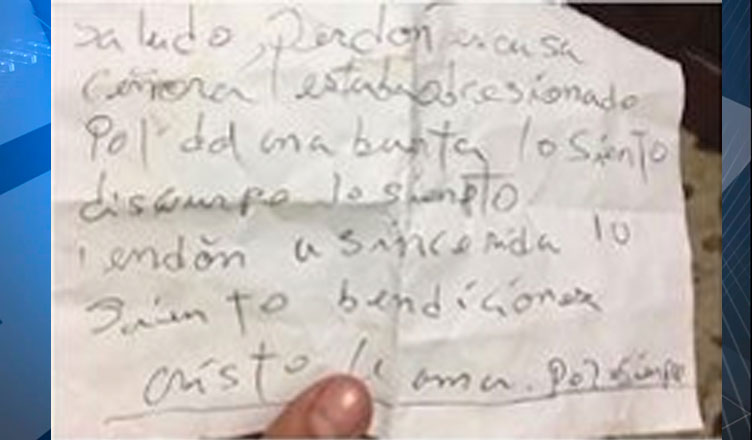 saludo, perdón escusa
ceñora estaba obcesionado
Pol dal una bueta lo siento
discurpe lo siento
sincerida lo
siento bendiciones
cristo le ama. Pol siempre